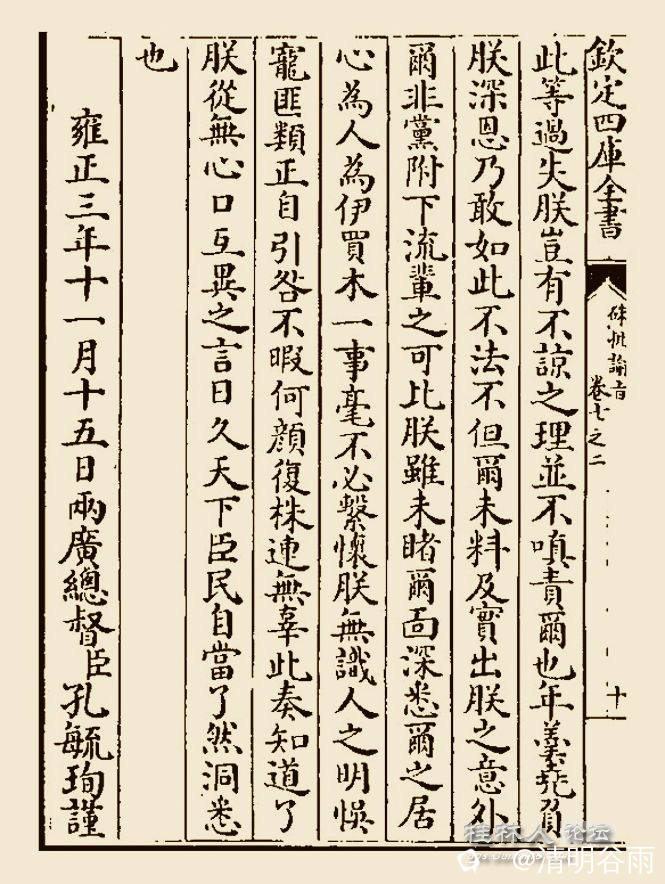 欽定四庫全書
硃批諭旨
卷七之二
十
此等過失朕豈有不諒之理並不嗔責爾也年羹堯負
朕深恩乃敢如此不法不但爾未料及實出朕之意外
爾非黨附下流輩之可比朕雖未睹爾面深悉爾之居
心為人為伊買木一事毫不必繫懷朕無識人之明悞
寵匪類正自引咎不暇何顏復株連無辜此奏知道了
朕從無心口互異之言日久天下臣民自當了然洞悉
也
雍正三年十一月十五日兩廣總督臣孔毓珣謹
桂林人论坛
@清明谷雨